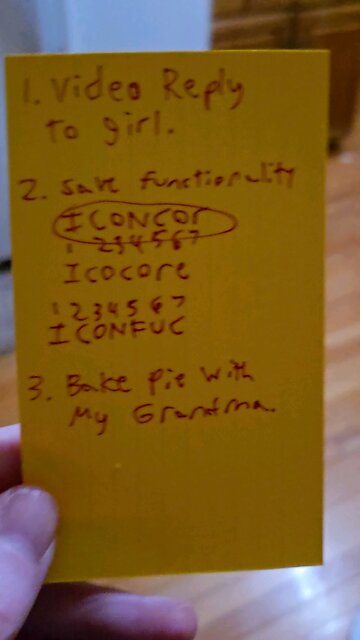 1. Video Reply
to girl.
2. Save functionality
ICONCOr
1 234567
Icocore
1 2 3 4 5 6 7
ICONFUC
3. Bake Pie with
My Grandma.